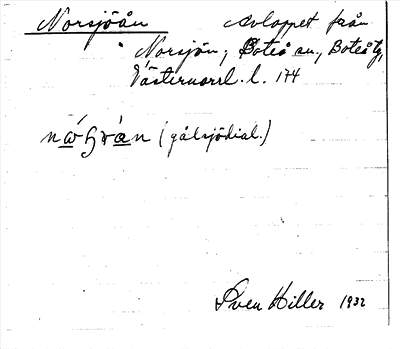 Norsjöån Avloppet från
Norsjön, Boteå sn., Boteå tg,
Västernorrl. l. 174
(gålsjödial.)
Sven Hiller 1932